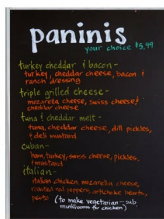 paninis
your choice $5.99
turkey cheddar & bacon-
turkey, cheddar cheese, bacon &
ranch dressing
triple grilled cheese-
mozarella cheese, swiss cheese &
cheddar cheese
tuna & cheddar melt-
tuna, cheddar cheese, dill pickles,
+ deli mustard
cuban-
ham, turkey, swiss cheese, pickles,
& mustard
italian-
italian chicken, mozarella cheese,
roasted red peppers, artichoke hearts,
pesto
(to make vegetarian- sub
mushrooms for chicken)